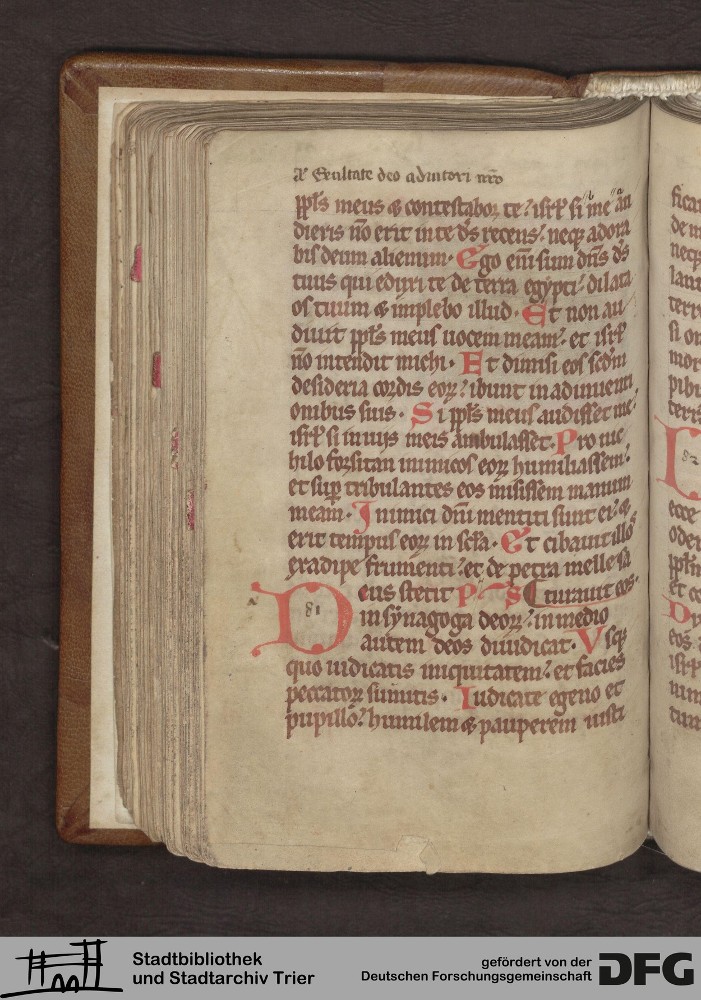 a᷎ Exultate deo adiutori nr̄o
pp̄ls meus & contestabor te? isr̄l si me au
dieris nō erit in te d̄s recens? neq; adora
bis deum alienum. Ego eni̅ sum dn̄s d̄s
tuus qui eduxi te de terra egypti? dilata
os tuum & implebo illud. Et non au
diuit pp̄ls meus uocem meam? et isr̄l
nō intendit michi. Et dimisi eos scd̄m
desideria cordis eoꝝ? ibunt in adinuenti
onibus suis. Si pp̄ls meus audisset me?
isr̄l si in uijs meis ambulasset. Pro nic
hilo forsitan inimicos eoꝝ humiliassem?
et sup̄ tribulantes eos misissem manum
meam. Inimici dn̄i mentiti sunt ei? &
erit tempus eoꝝ in scl̄a. Et cibauit illos
exadipe frumenti? et de petra melle sa
turauit eos.
Deus stetit PS
81
in synagoga deoꝝ? in medio
autem deos diiudicat. Vsq;
quo iudicatis iniquitatem? et facies
peccatoꝝ sumitis. Iudicate egeno et
pupillo? humilem & pauperem iusti
82
Stadtbibliothek
und Stadtarchiv Trier
gefördert von der
Deutschen Forschungsgemeinschaft
DFG